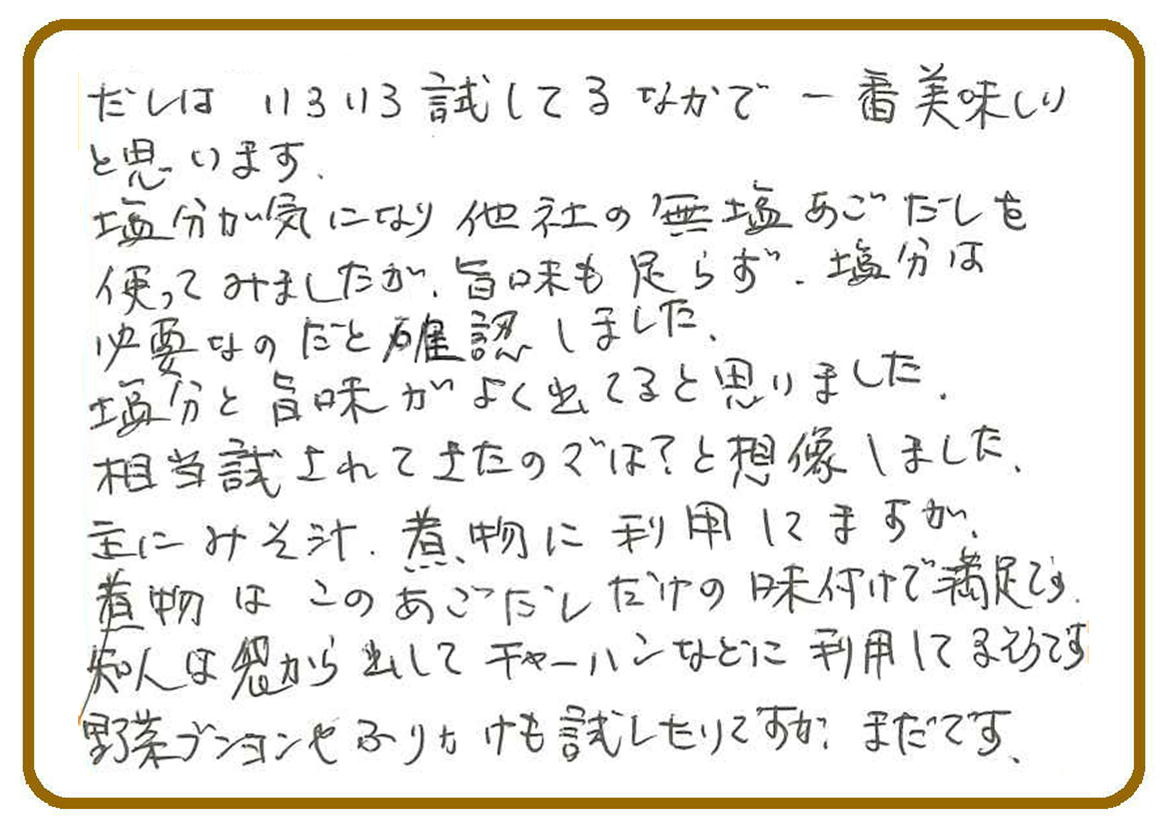 だしは いろいろ試してるなかで 一番美味しい
と思います.
塩分が気になり 他社の無塩あごだしを
使ってみましたが、旨味も足らず、塩分は
必要なのだと確認しました、
塩分と旨味がよく出てると思いました.
相当試されてきたのでは?と想像しました、
主にみそ汁、煮物に利用してますが、
煮物はこのあごだしだけの味付けで満足です.
知人は袋から出してチャーハンなどに利用してるそうです
野菜ブションやふりかけも試したいですが、まだです、